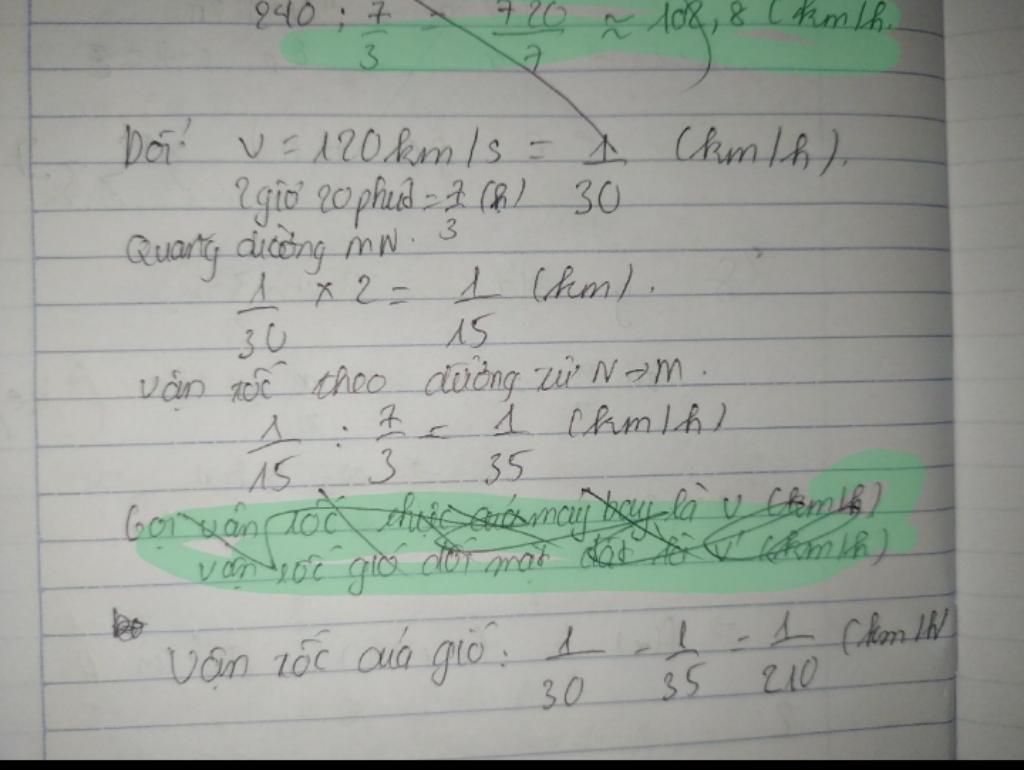 240 : 7/3 = 720/7 ≈ 102,8 (km/h)
Đổi: v = 120km/s = 1/30 (km/h).
2giờ 20phút = 7/3 (h)
Quang đường MN.
1/30 × 2 = 1/15 (km).
vận tốc theo đường từ N → M.
1/15 : 7/3 = 1/35 (km/h)
Gọi vận tốc thực của máy bay là v (km/h)
vận tốc gió đối mặt đất là v' (km/h)
Vận tốc của gió: 1/30 - 1/35 = 1/210 (km/h)